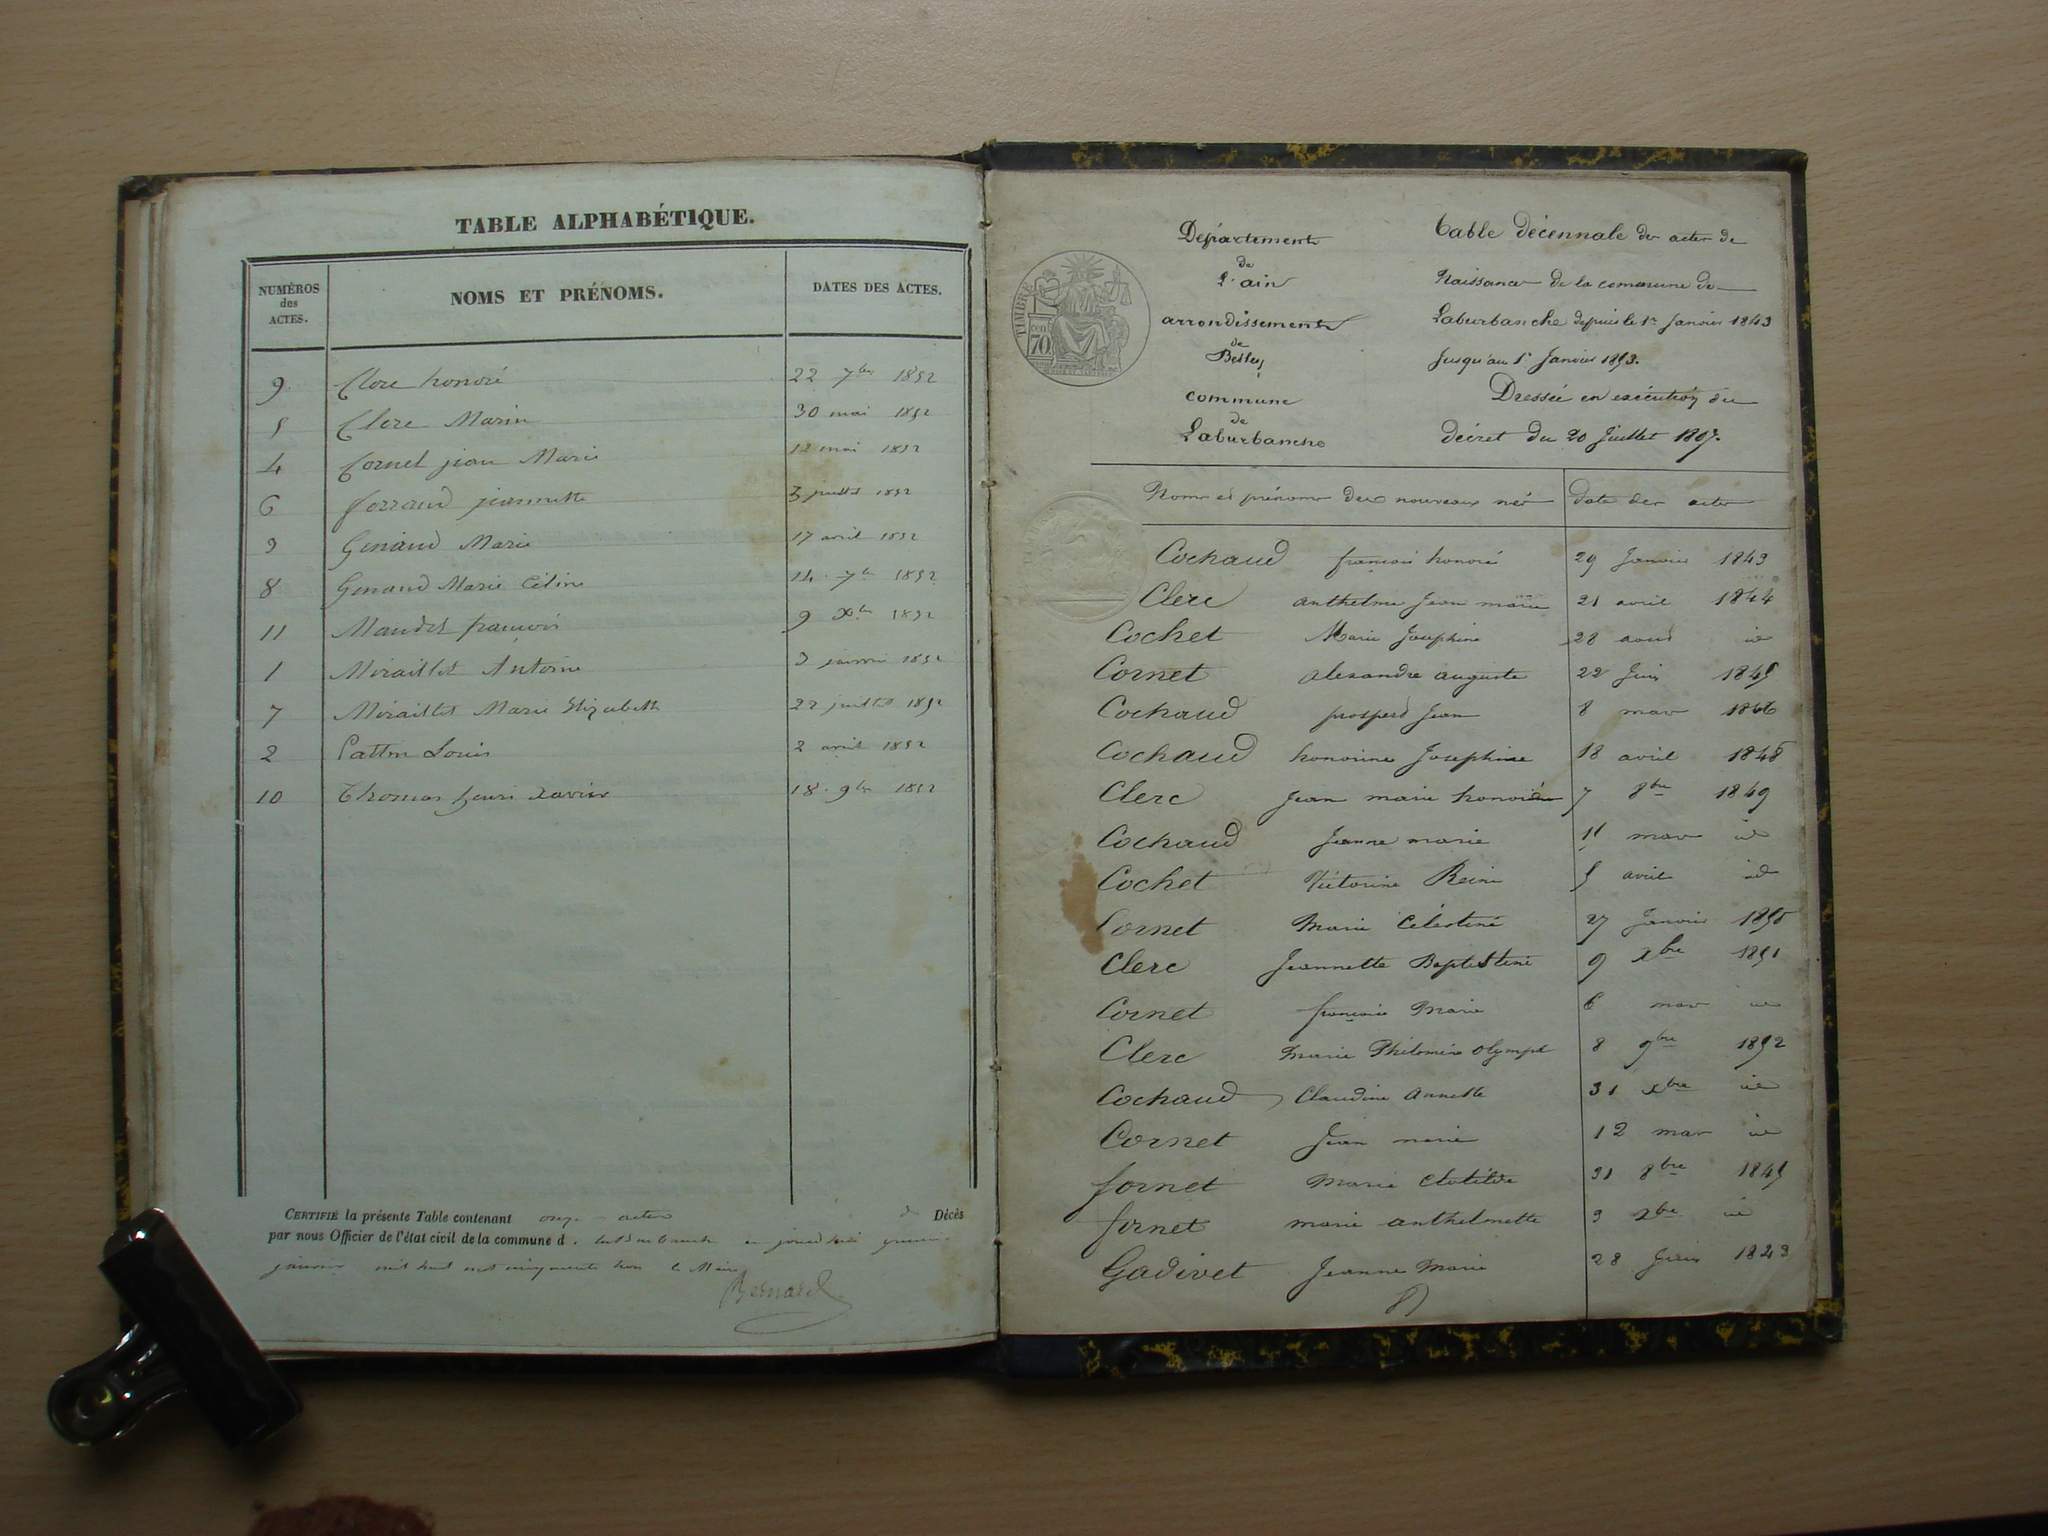 TABLE ALPHABÉTIQUE.
NUMÉROS des ACTES. NOMS ET PRÉNOMS. DATES DES ACTES.
9 Clerc honoré 22 7bre 1852
5 Clerc Marin 30 mai 1852
4 Cornet jean Marie 12 mai 1852
6 ferraud jeannette 3 juillet 1852
3 Genaud Marie 17 avril 1852
8 Genaud Marie Céline 14 7bre 1852
11 Maudet françois 9 Xbre 1852
1 Miraillet Antoine 3 janvier 1852
7 Miraillet Marie Elizabeth 22 juillet 1852
2 Patton Louis 2 avril 1852
10 Thomas henri Xavier 18 9bre 1852
CERTIFIÉ la présente Table contenant onze actes de Décès
par nous Officier de l'état civil de la commune d. Laburbanche
janvier mil huit cent cinquante trois le Maire
Bernard
TIMBRE
cent 70
Département
de
L'ain
arrondissement
de
Belley
commune
de
Laburbanche
Table décennale des actes de
Naissance de la commune de
Laburbanche depuis le 1er Janvier 1843
Jusqu'au 1er Janvier 1853.
Dressée en exécution du
décret du 20 Juillet 1807.
Noms et prénoms des nouveaux nés date des actes
Cochaud françois honoré 29 Janvier 1843
Clerc anthelme Jean marie 21 avril 1844
Cochet Marie Josephine 28 aout id
Cornet alexandre auguste 22 Juin 1845
Cochaud prosperd Jean 8 mars 1846
Cochaud honorine Josephine 18 avril 1848
Clerc Jean marie honoré 7 8bre 1849
Cochaud Jeanne marie 11 mars id
Cochet Victorine Reine 5 avril id
Cornet Marie Célestine 27 Janvier 1850
Clerc Jeannette Baptistine 9 xbre 1851
Cornet françoise Marie 6 mars id
Clerc Marie Philomène Olympe 8 9bre 1852
Cochaud Claudine Annette 31 xbre id
Cornet Jean marie 12 mars id
fornet Marie Clotilde 31 8bre 1845
fornet marie anthelmette 3 xbre id
Gadivet Jeanne Marie 28 Juin 1843